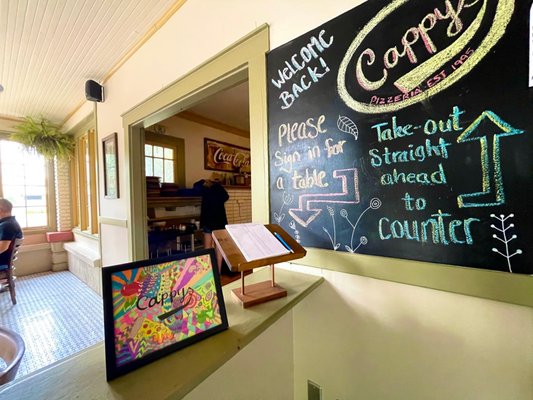 Welcome
Back!
Cappy's
Pizzeria Est 1995
Please
Sign in for
a table
Take-out
Straight
ahead
to
counter
Coca-Cola
Cappy's